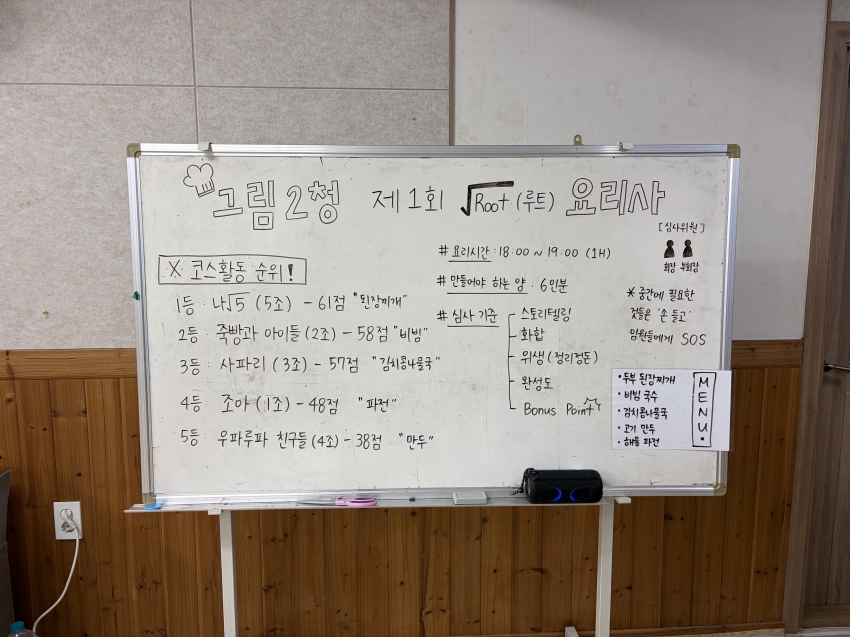 그림2청 제1회 √Root (루트) 요리사
※ 코스활동 순위!
1등 : 나√5 (5조) - 61점 "된장찌개"
2등 : 죽빵과 아이들 (2조) - 58점 "비빔"
3등 : 사파리 (3조) - 57점 "김치콩나물국"
4등 : 조아 (1조) - 48점 "파전"
5등 : 우파루파 친구들 (4조) - 38점 "만두"
# 요리시간 : 18:00 ~ 19:00 (1H)
# 만들어야 하는 양 : 6인분
# 심사 기준
스토리텔링
화합
위생 (정리정돈)
완성도
Bonus Point
[심사위원]
회장 부회장
* 중간에 필요한
것들은 '손 들고'
임원들에게 SOS
MENU.
• 두부 된장찌개
• 비빔 국수
• 김치콩나물국
• 고기 만두
• 해물 파전